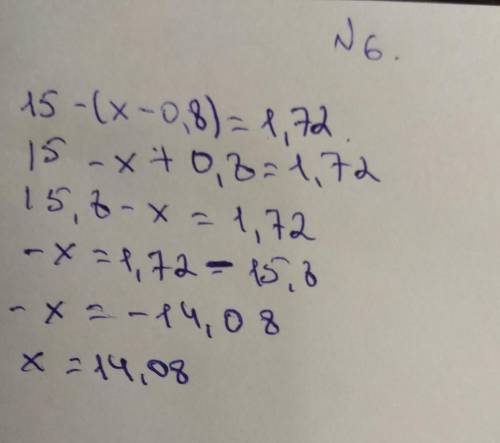 N 6.
15 - (x - 0,8) = 1,72
15 - x + 0,8 = 1,72
15,8 - x = 1,72
- x = 1,72 - 15,8
- x = - 14,08
x = 14,08